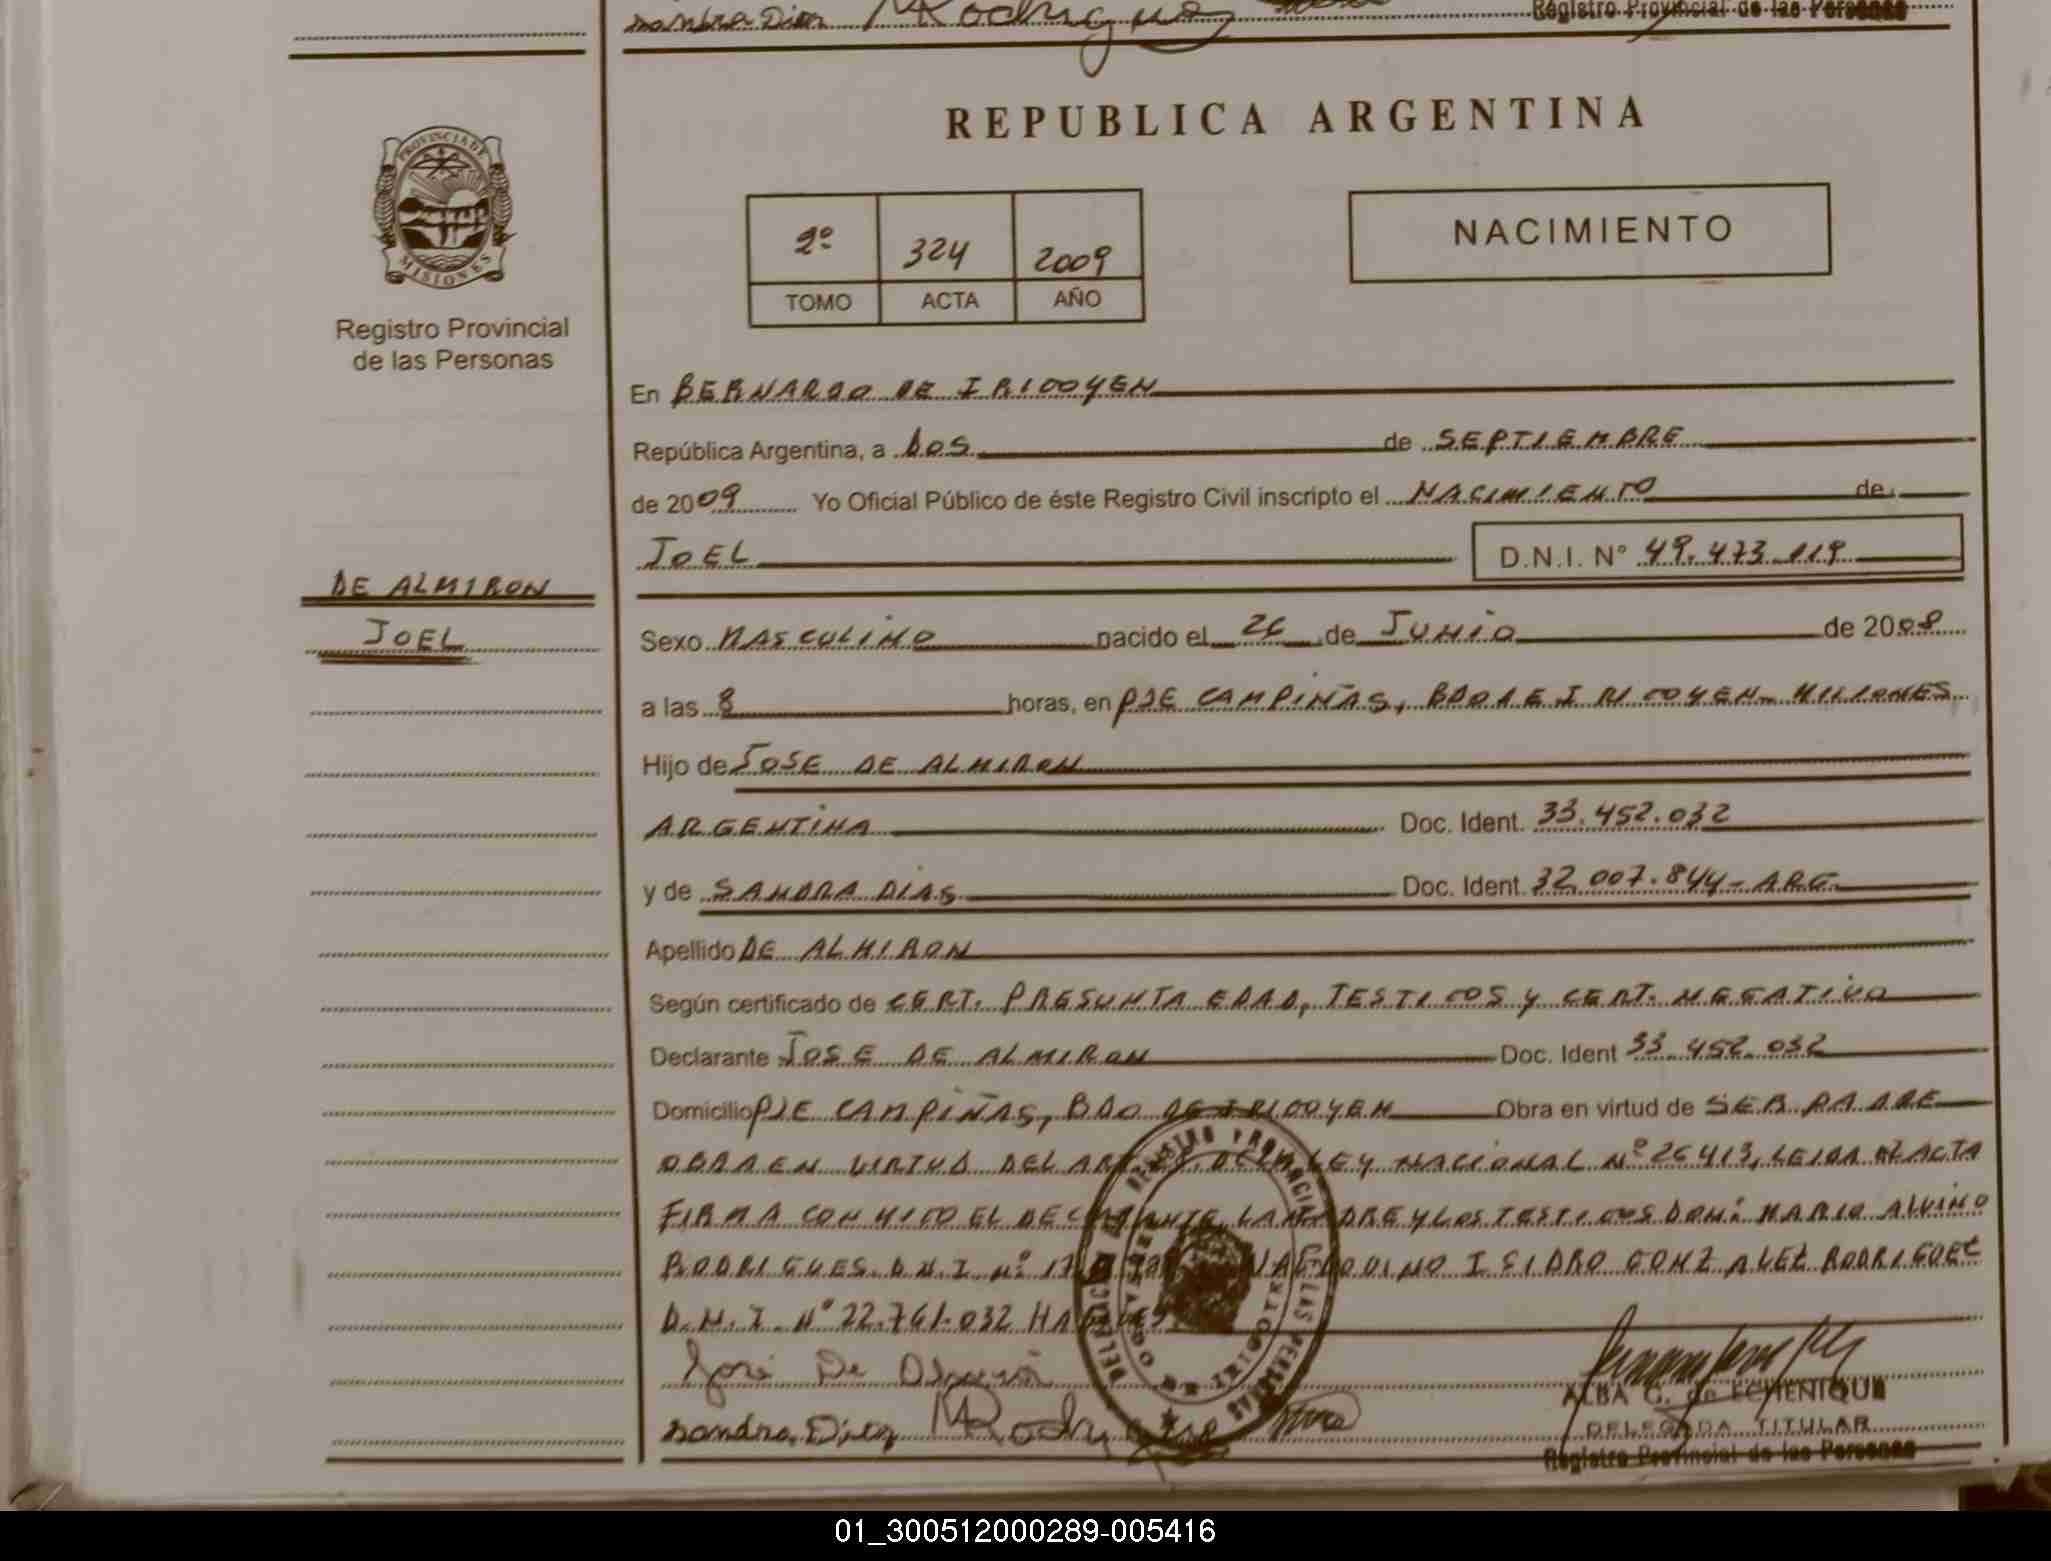 Sandra Dias MRodrigues
Registro Provincial de las Personas
PROVINCIA DE
MISIONES
Registro Provincial
de las Personas
REPUBLICA ARGENTINA
2º 324 2009
TOMO ACTA AÑO
NACIMIENTO
En BERNARDO DE IRIGOYEN
República Argentina, a DOS de SEPTIEMBRE
de 2009 Yo Oficial Público de éste Registro Civil inscripto el NACIMIENTO de
JOEL D.N.I. Nº 49.473.119
DE ALMIRON
JOEL
Sexo MASCULINO nacido el 26 de JUNIO de 2008
a las 8 horas, en PJE CAMPIÑAS, BDO DE IRIGOYEN - MISIONES
Hijo de JOSE DE ALMIRON
ARGENTINA Doc. Ident. 33.452.032
y de SANDRA DIAS Doc. Ident. 32.007.844 - ARG.
Apellido DE ALMIRON
Según certificado de CERT. PRESUNTA EDAD, TESTIGOS Y CERT. NEGATIVO
Declarante JOSE DE ALMIRON Doc. Ident 33.452.032
Domicilio PJE CAMPIÑAS, BDO DE IRIGOYEN Obra en virtud de SER PADRE
OBRA EN VIRTUD DEL DE LA LEY NACIONAL Nº 26413, LEIDA EL ACTA
FIRMA CONMIGO EL DECLARANTE, LA MADRE Y LOS TESTIGOS DON: MARIO ALVINO
RODRIGUES D.N.I Nº 17 ISIDRO GONZALEZ RODRIGUEZ
D.N.I. Nº 22.761.032 HABILES
José De Almirón
Sandra Dias MRodrigues
ALBA G. de ECHENIQUE
DELEGADA TITULAR
Registro Provincial de las Personas
01_300512000289-005416